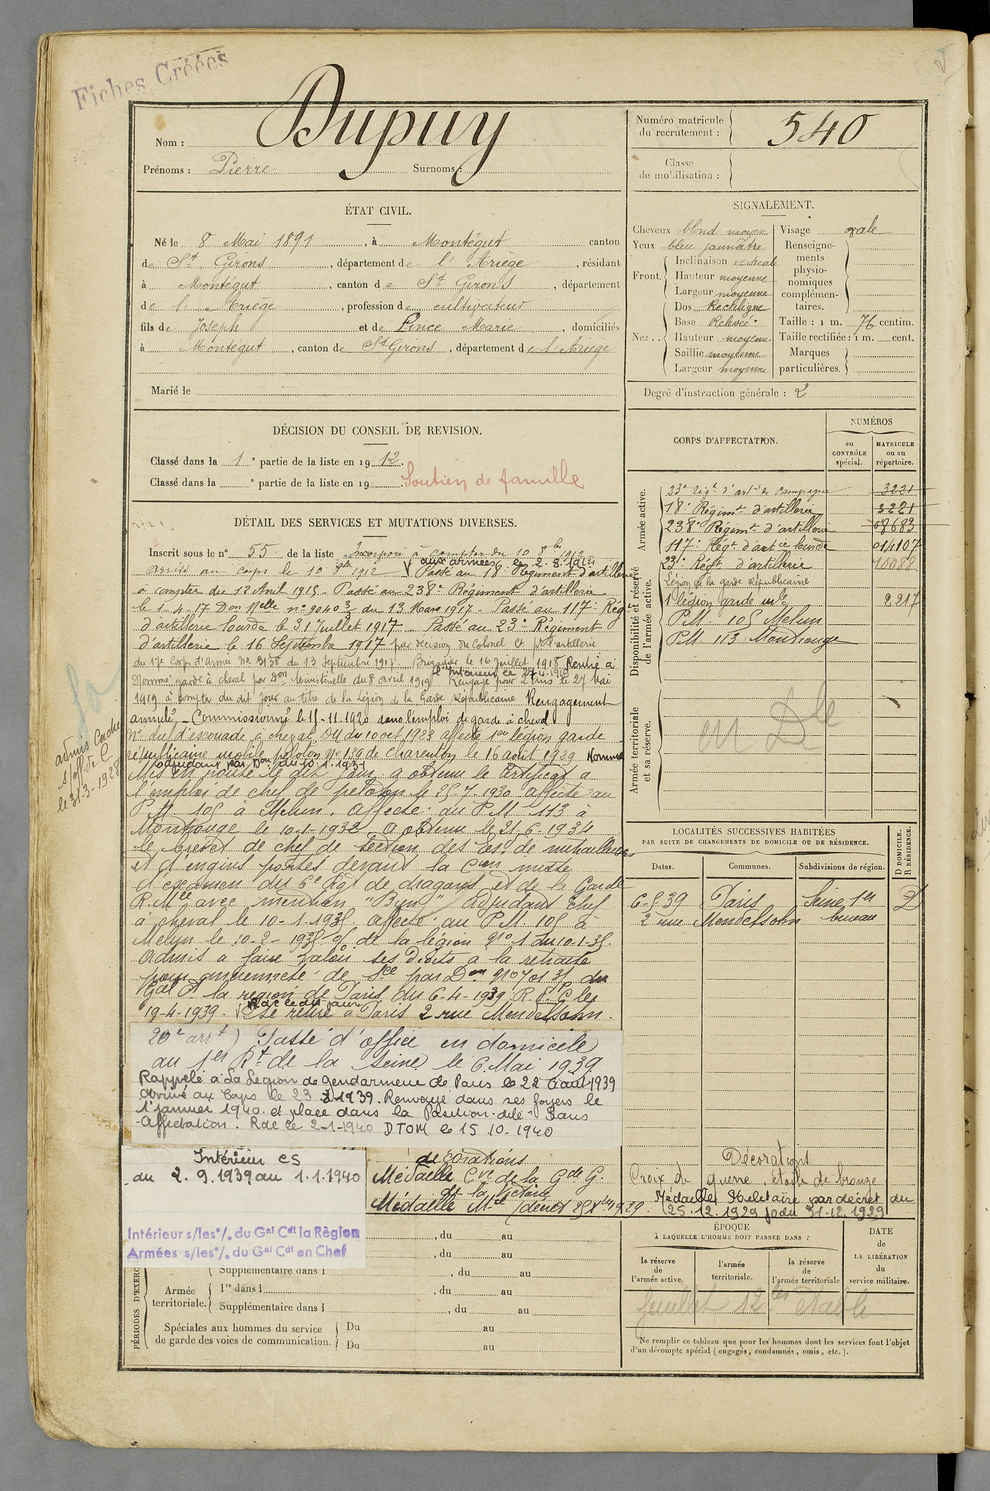 Fiches Créées
Nom : Dupuy
Prénoms : Pierre Surnoms :
Numéro matricule du recrutement : 540
Classe de mobilisation :
ÉTAT CIVIL.
Né le 8 Mai 1891, à Montégut canton
de St Girons, département de l'Ariège, résidant
à Montégut, canton de St Girons, département
de l'Ariège, profession de cultivateur
fils de Joseph et de Pince Marie, domiciliés
à Montégut, canton de St Girons, département de l'Ariège
Marié le
SIGNALEMENT.
Cheveux blond moyen
Yeux bleu jaunâtre
Front. Inclinaison verticale
Hauteur moyenne
Largeur moyenne
Nez.. Dos Rectiligne
Base Relevée
Hauteur moyenne
Saillie moyenne
Largeur moyenne
Visage ovale
Renseignements physionomiques complémentaires.
Taille : 1 m. 76 centim.
Taille rectifiée : 1 m. cent.
Marques particulières.
Degré d'instruction générale : 2
DÉCISION DU CONSEIL DE REVISION.
Classé dans la 1e partie de la liste en 1912.
Classé dans la e partie de la liste en 19 Soutien de famille
DÉTAIL DES SERVICES ET MUTATIONS DIVERSES.
Inscrit sous le n° 55 de la liste Incorporé à compter du 10 8bre 1912
aux armées le 2.8.1914
arrivé au corps le 10 1912 Passé au 18e Régiment d'artillerie
à compter du 12 Avril 1915 - Passé au 238e Régiment d'artillerie
le 1-4-17 Don Mlle n° 9040 3/3 du 13 Mars 1917 - Passé au 117e Rég
d'artillerie lourde le 31 Juillet 1917 - Passé au 23e Régiment
d'artillerie le 16 Septembre 1917 par décision du Colonel Ct l'artillerie
du 17e Corps d'Armée N° 3138 du 13 Septembre 1917. Brigadier le 16 Juillet 1918 Rentré à
l'intérieur le 27.4.1919
Nommé garde à cheval par Don Ministérielle du 8 avril 1919 Rengagé pour 2 ans le 27 Mai
1919 à compter du dit jour au titre de la Légion de la Garde Républicaine Rengagement
annulé - Commissionné le 15-11-1920 dans l'emploi de garde à cheval
Mle chef d'escouade à cheval DM du 10 oct 1928 affecté 1ère légion garde
républicaine mobile peloton N° 139 de Charenton le 16 août 1929 Nommé
adjudant par Don du 10.1.1931
Mis en route le dit jour. a obtenu le certificat à
l'emploi de chef de peloton le 25-7-1930. affecté au
P.M. 105 à Melun. Affecté au P.M 113 à
Montrouge le 10-1-1932 a obtenu le 21-6-1934
le brevet de chef de section des Es. de mitrailleuses
et d'engins portés devant la Con mixte
d'examen du 6e Rgt de dragons et de la Garde
R.Mle avec mention "Bien" Adjudant Chef
à cheval le 10-1-1935 affecté au P.M. 105 à
Melun le 10-2-1935 de la légion n° 1 du 10.1.35.
Admis à faire valoir ses droits à la retraite
pour ancienneté de Sce par Don du
Gal Ct la région de Paris du 6-4-1939 R.d.C le
Rdc ce dit jour
19-4-1939. Se retire à Paris 2 rue Mendelssohn.
20e arrt) Passé d'office en domicile
au 1er Rt de la Seine le 6 Mai 1939
Rappelé à la Légion de gendarmerie de Paris le 22 Août 1939
Arrivé au Corps le 23 1939. Renvoyé dans ses foyers le
1er janvier 1940. et placé dans la Position dite "Sans
Affectation. Rdc le 2-1-1940 DTOM le 15.10.1940
Intérieur CS
du 2.9.1939 au 1.1.1940
Intérieur s/les o/. du Gal Cdt la Région
Armées s/les o/. du Gal Cdt en Chef
décorations
Médaille Cve de la Gde G.
de la Victoire
Médaille Mre (décret 25 Xbre 1929.
admis Cadre
s/off de C.
le 31-3-1928
CORPS D'AFFECTATION.
NUMÉROS
au CONTRÔLE spécial.
MATRICULE ou au répertoire.
Armée active.
23e Régt d'artie de Campagne 3221
18e Régimt d'artillerie 3221
238e Régimt d'artillerie 08683
117e Régt d'artie lourde 014107
Disponibilité et réserve de l'armée active.
23e Régt d'artillerie 10088
Légion de la garde Républicaine
1 légion garde mle 2217
P.M. 105 Melun
P.M. 113 Montrouge
Armée territoriale et sa réserve.
en Dle
LOCALITÉS SUCCESSIVES HABITÉES
PAR SUITE DE CHANGEMENTS DE DOMICILE OU DE RÉSIDENCE.
Dates. Communes. Subdivisions de région. D DOMICILE. R RÉSIDENCE.
6-5-39 Paris Seine 1er D
2 rue Mendelssohn bureau
Décorations
Croix de guerre, étoile de bronze
Médaille Militaire par décret du
25.12.1929 jo du 31.12.1929
PÉRIODES D'EXERC
, du au
, du au
Supplémentaire dans l , du au
Armée territoriale. 1re dans l , du au
Supplémentaire dans l , du au
Spéciales aux hommes du service de garde des voies de communication. Du au
Du au
ÉPOQUE
À LAQUELLE L'HOMME DOIT PASSER DANS :
la réserve de l'armée active.
l'armée territoriale.
la réserve de l'armée territoriale
DATE de LA LIBÉRATION du service militaire.
feuillet 12 établi
Ne remplir ce tableau que pour les hommes dont les services font l'objet
d'un décompte spécial (engagés, condamnés, omis, etc.).